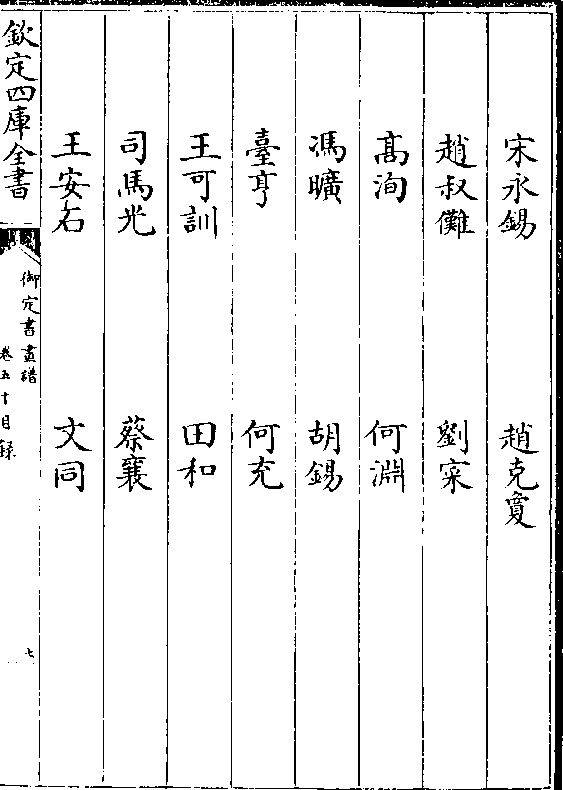 宋永錫　趙克夐
趙叔儺　劉寀
髙洵　何淵
馮曠　胡錫
臺亨　何充
王可訓　田和
司馬光　蔡襄
王安石　文同
欽定四庫全書
御定書畫譜
卷五十目録
七